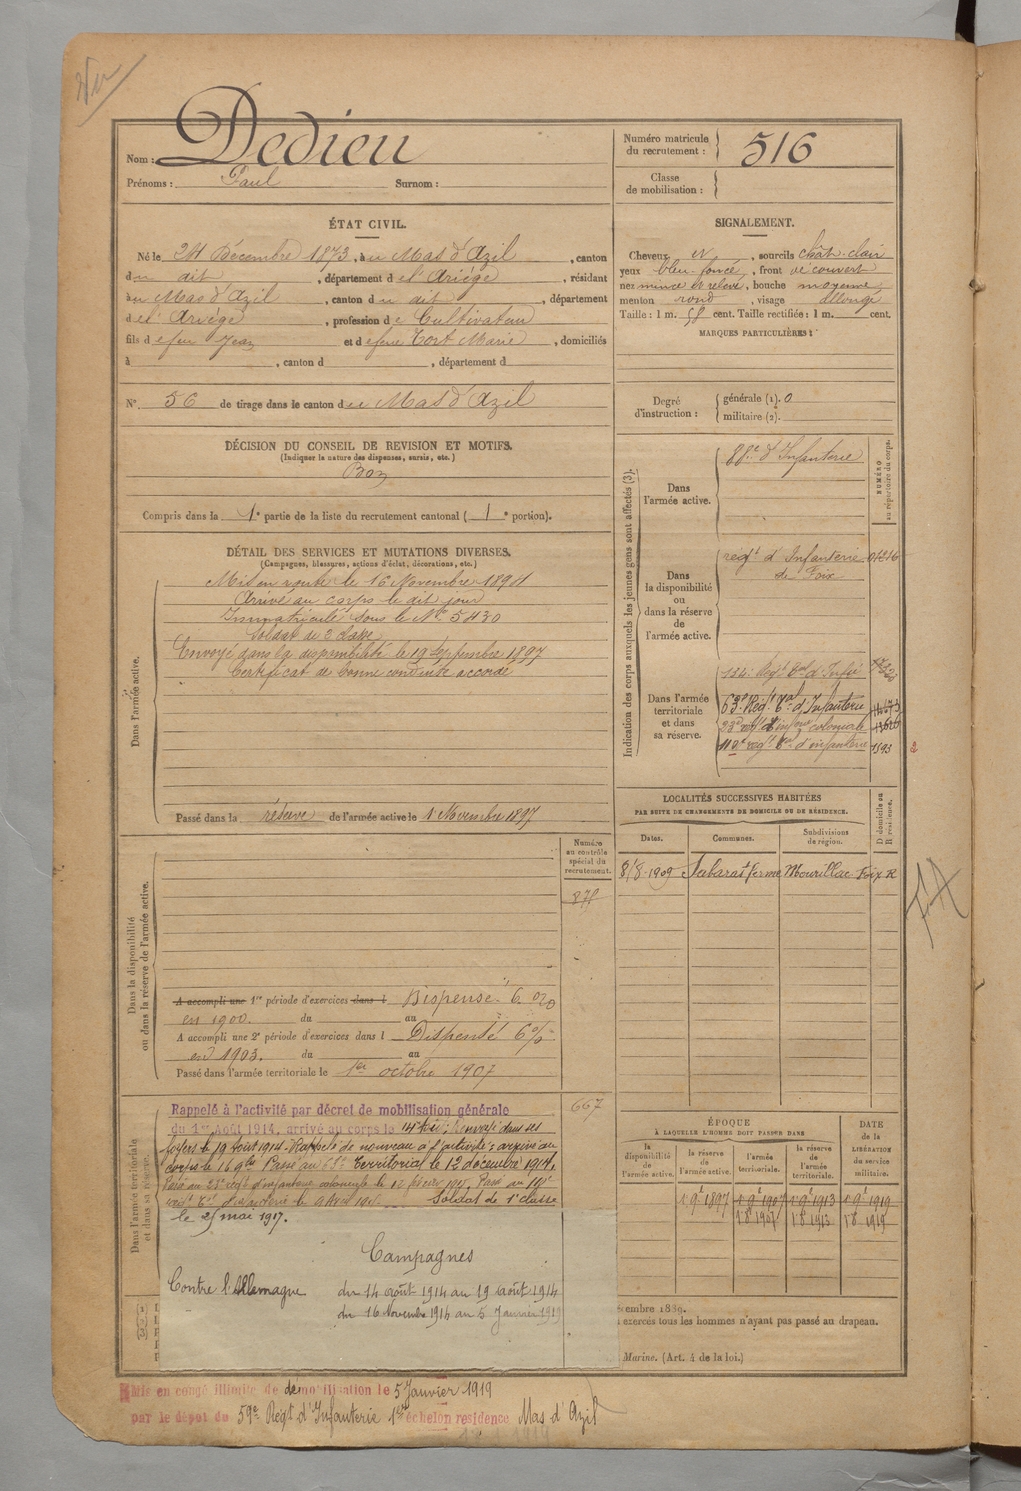 Vu
Nom : Dedieu
Prénoms : Paul Surnom :
Numéro matricule du recrutement : 516
Classe de mobilisation :
ÉTAT CIVIL.
Né le 24 Décembre 1873, à u Mas d'Azil, canton
du dit, département de l'Ariège, résidant
au Mas d'Azil, canton du dit, département
de l'Ariège, profession de Cultivateur
fils de feu Jean et de feue Tort Marie, domiciliés
à , canton d , département d
N° 56 de tirage dans le canton du Mas d'Azil
SIGNALEMENT.
Cheveux et, sourcils chât-clair
yeux bleu-foncé, front découvert
nez mince et relevé, bouche moyenne,
menton rond, visage allongé
Taille : 1 m. cent. Taille rectifiée : 1 m. cent.
MARQUES PARTICULIÈRES :
Degré d'instruction : générale (1). 0
militaire (2).
DÉCISION DU CONSEIL DE REVISION ET MOTIFS.
(Indiquer la nature des dispenses, sursis, etc.)
Bon
Compris dans la 1e partie de la liste du recrutement cantonal (1e portion).
DÉTAIL DES SERVICES ET MUTATIONS DIVERSES.
(Campagnes, blessures, actions d'éclat, décorations, etc.)
Dans l'armée active.
Mis en route le 16 Novembre 1894
Arrivé au corps le dit jour
Immatriculé sous le No 5430
Soldat de 2 classe
Envoyé dans la disponibilité le 19 Septembre 1897
Certificat de bonne conduite accordé
Passé dans la réserve de l'armée active le 1 Novembre 1897
Indication des corps auxquels les jeunes gens sont affectés (3).
NUMÉRO au répertoire du corps.
Dans l'armée active.
88e d'Infanterie
Dans la disponibilité ou dans la réserve de l'armée active.
regt d'Infanterie
de Foix
Dans l'armée territoriale et dans sa réserve.
134e Regt Tal d'Infie
63e Regt Tal d'Infanterie
23e regt d'infrie coloniale
110e regt Tal d'infanterie 1593
2
LOCALITÉS SUCCESSIVES HABITÉES
PAR SUITE DE CHANGEMENTS DE DOMICILE OU DE RÉSIDENCE.
Dates. Communes. Subdivisions de région. D domicile ou R résidence.
8/8-1909 Sabarat ferme Mourillac Foix R
Numéro au contrôle spécial du recrutement.
Dans la disponibilité ou dans la réserve de l'armée active.
A accompli une 1re période d'exercices dans l Dispensé 6 0/0
en 1900. du au
A accompli une 2e période d'exercices dans l Dispensé 6 %
en 1903. du au
Passé dans l'armée territoriale le 1er octobre 1907
667
Dans l'armée territoriale et dans sa réserve.
Rappelé à l'activité par décret de mobilisation générale
du 1er Août 1914, arrivé au corps le 14 dit; Renvoyé dans ses
foyers le 19 Août 1914. Rappelé de nouveau à l'activité; arrivé au
corps le 16 9bre Passé au 63e Territorial le 12 décembre 1914.
Passé au 23e regt d'infanterie coloniale le 12 février 1917. Passé au 110e
regt Tal d'infanterie le 9 Avril 1917. Soldat de 1e classe
le 25 mai 1917.
Campagnes
Contre l'Allemagne du 14 août 1914 au 19 août 1914
du 16 Novembre 1914 au 5 Janvier 1919
ÉPOQUE
À LAQUELLE L'HOMME DOIT PASSER DANS
la disponibilité de l'armée active. la réserve de l'armée active. l'armée territoriale. la réserve de l'armée territoriale.
DATE de la LIBÉRATION du service militaire.
1 9e 1897 1 9e 1907 1 9e 1913 1 9e 1919
1 8 1907 1 8 1913 1 8 1919
FA
écembre 1889.
exercés tous les hommes n'ayant pas passé au drapeau.
Marine. (Art. 4 de la loi.)
Mis en congé illimité de démobilisation le 5 Janvier 1919
par le dépôt du 59e Regt d'Infanterie 1er échelon residence Mas d'Azil